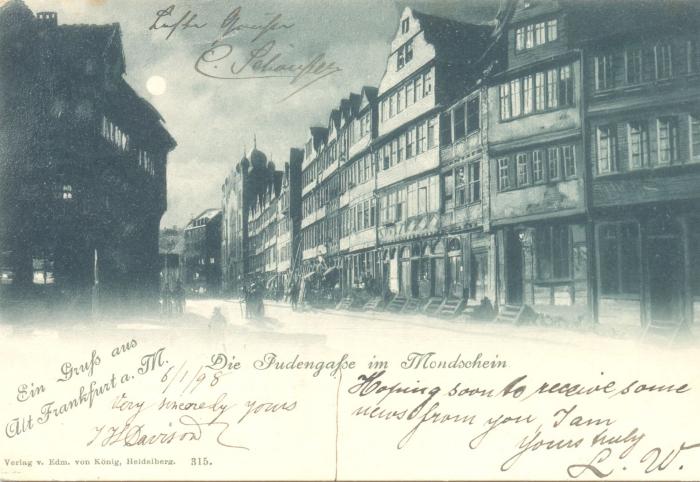 Beste Grüsse
C. Schäußler
Ein Gruß aus
Alt Frankfurt a. M.
Die Judengaße im Mondschein
6/1/98
Very sincerely yours
J H Davison
Hoping soon to receive some
news from you, I am
Yours truly
L. W.
Verlag v. Edm. von König, Heidelberg. 315.